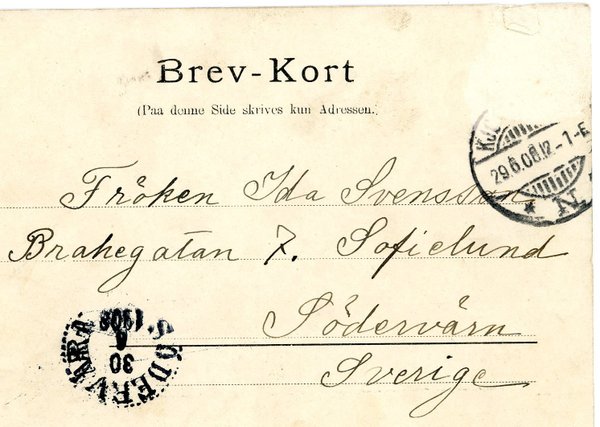 Brev-Kort
(Paa denne Side skrives kun Adressen.)
29.6.08.12-1-E
* N *
Fröken Ida Svensson
Brahegatan 7. Sofielund
Södervärn
Sverige
SÖDERVÄRN
30
6
1908